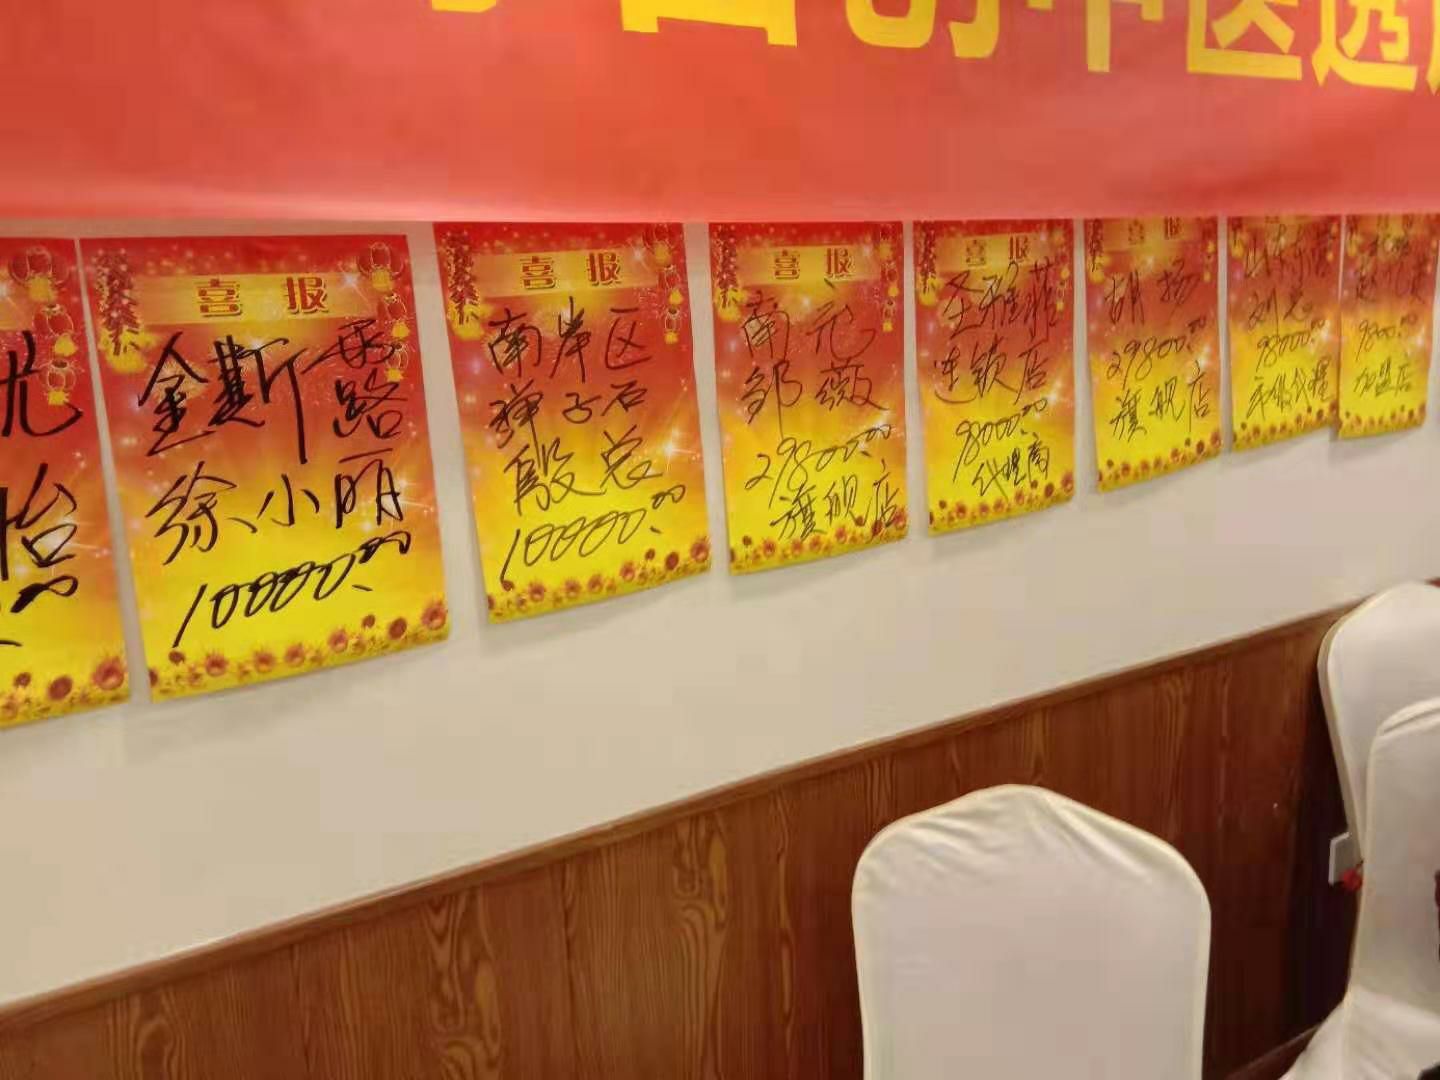 中医透
尤
怡
喜报
金斯
路
徐小丽
10000.00
喜报
南岸区
弹子石
殷总
10000.00
喜报
南元
邹薇
29800.00
旗舰店
喜报
圣雅菲
连锁店
98000.00
代理商
喜报
胡扬
29800.
旗舰店
山东东营
98000.
9800.
加盟店